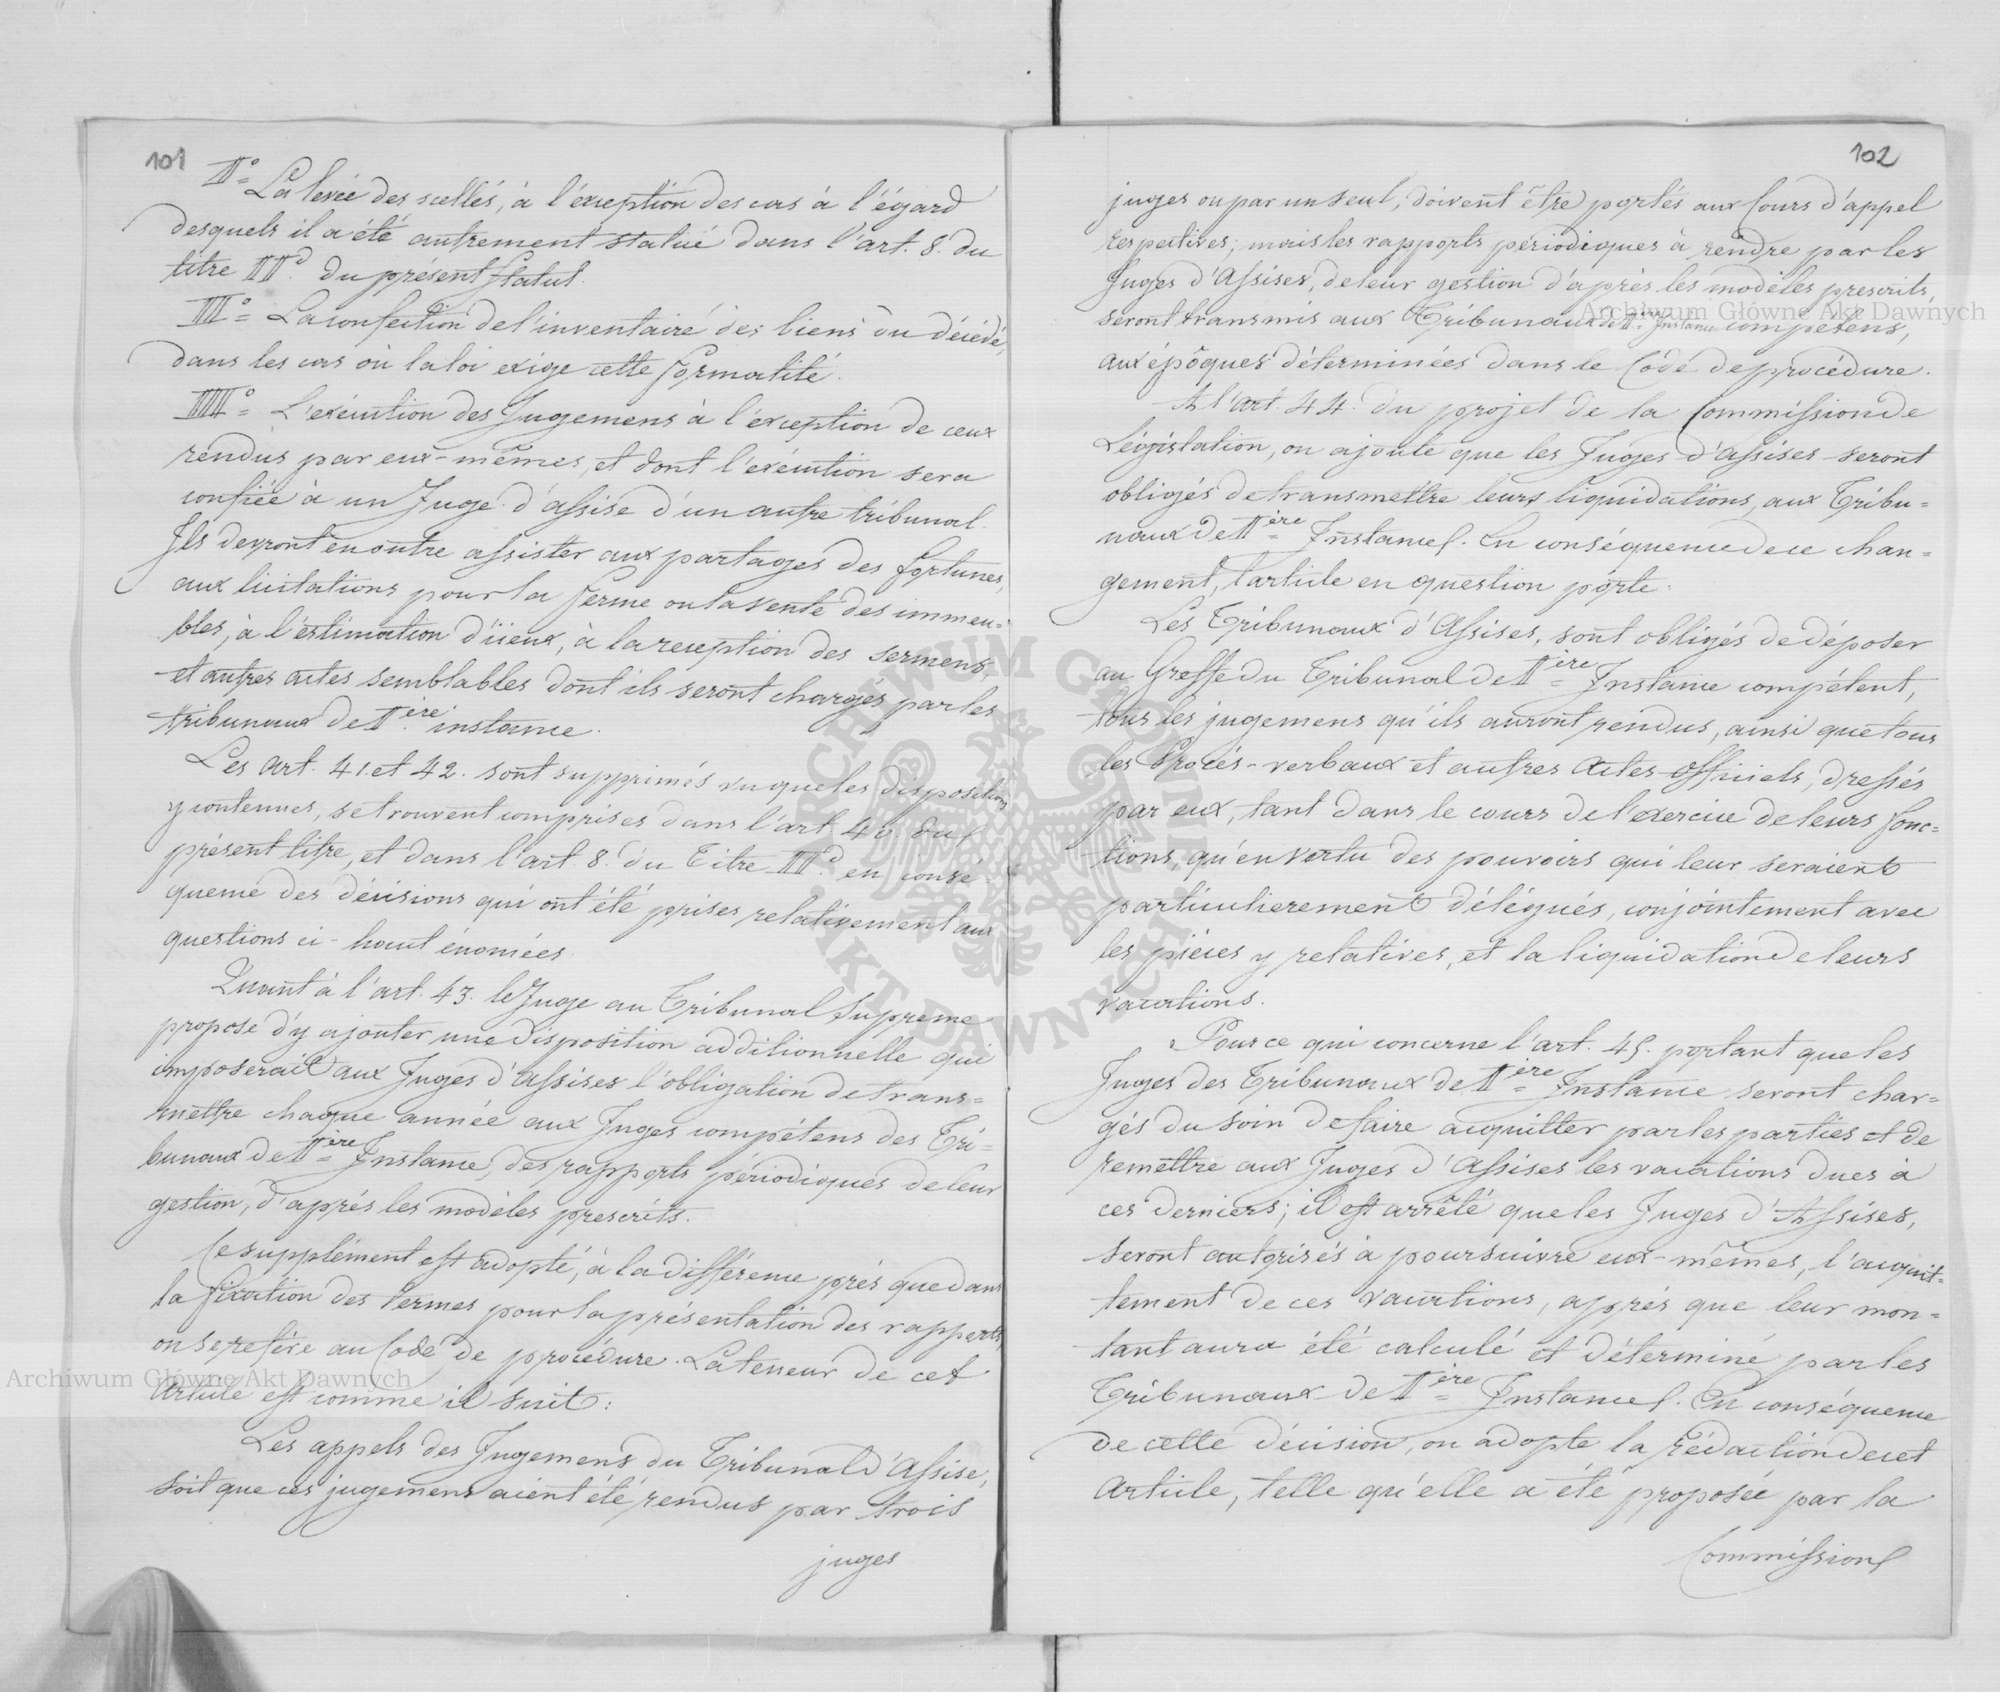 101
II° La levée des scellés, à l'éxception des cas à l'égard
desquels il a été autrement statué dans l'art. 8. du
titre IId. du présent Statut.
III° La confection de l'inventaire des biens du décédé,
dans les cas où la loi exige cette formalité.
IIII° L'exécution des Jugemens à l'exception de ceux
rendus par eux-mêmes, et dont l'exécution sera
confiée à un Juge d'assise d'un autre tribunal.
Ils devront en outre assister aux partages des fortunes,
aux licitations pour la ferme ou la vente des immeu-
bles, à l'estimation d'iceux, à la reception des sermens,
et autres actes semblables dont ils seront chargés par les
tribunaux de Iere instance.
Les art. 41. et 42. sont supprimés vu que les dispositions
y contenues, se trouvent comprises dans l'art. 40. du
présent titre, et dans l'art. 8. du Titre IId. en consé-
quence des décisions qui ont été prises relativement aux
questions ci-haut énoncées.
Quant à l'art. 43. le Juge au Tribunal Supreme
propose d'y ajouter une disposition additionnelle qui
imposerait aux Juges d'Assises l'obligation de trans=
mettre chaque année aux Juges compétens des Tri=
bunaux de Ière Instance, des rapports périodiques de leur
gestion, d'après les modèles prescrits.
Ce supplément est adopté, à la différence près que dans
la fixation des termes pour la présentation des rapports,
on se refère au Code de procédure. La teneur de cet
Article est comme il suit:
Les appels des Jugemens du Tribunal d'Assise,
soit que ces jugemens aient été rendus par trois
juges
102
juges ou par un seul, doivent être portés aux Cours d'appel
respectives; mais les rapports périodiques à rendre par les
Juges d'Assises, de leur gestion d'après les modèles prescrits,
seront transmis aux Tribunaux de Iè Instance compétens,
aux époques déterminées dans le Code de procédure.
A l'art. 44. du projet de la Commission de
Législation, on ajoute que les Juges d'Assises seront
obligés de transmettre leurs liquidations, aux Tribu=
naux de Ière Instance. En conséquence de ce chan=
gement, l'article en question porte:
Les Tribunaux d'Assises, sont obligés de déposer
au Greffe du Tribunal de Ière Instance compétent,
tous les jugemens qu'ils auront rendus, ainsi que tous
les Procès-verbaux et autres Actes officiels, dressés
par eux, tant dans le cours de l'exercice de leurs fonc=
tions, qu'en vertu des pouvoirs qui leur seraient
particulierement délégués, conjointement avec
les pièces y relatives, et la liquidation de leurs
vacations.
Pour ce qui concerne l'art. 45. portant que les
Juges des Tribunaux de Ière Instance seront char=
gés du soin de faire acquitter par les parties et de
remettre aux Juges d'Assises les vacations dues à
ces derniers; il est arrêté que les Juges d'Assises,
seront autorisés à poursuivre eux-mêmes, l'acquit=
tement de ces vacations, après que leur mon=
tant aura été calculé et déterminé par les
Tribunaux de Ière Instance. En conséquence
de cette décision, on adopte la rédaction de cet
Article, telle qu'elle a été proposée par la
Commission
Archiwum Główne Akt Dawnych
Archiwum Główne Akt Dawnych
ARCHIWUM GŁÓWNE AKT DAWNYCH